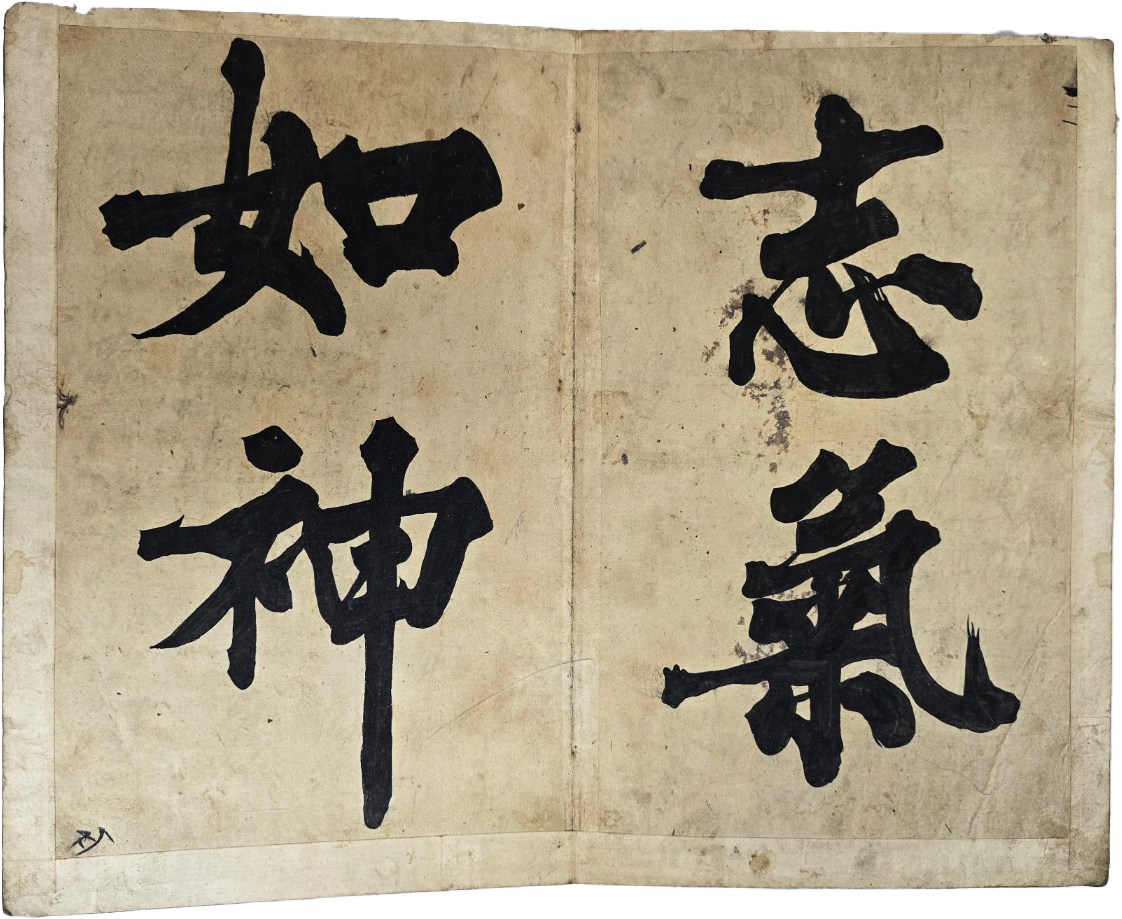 志氣
如神